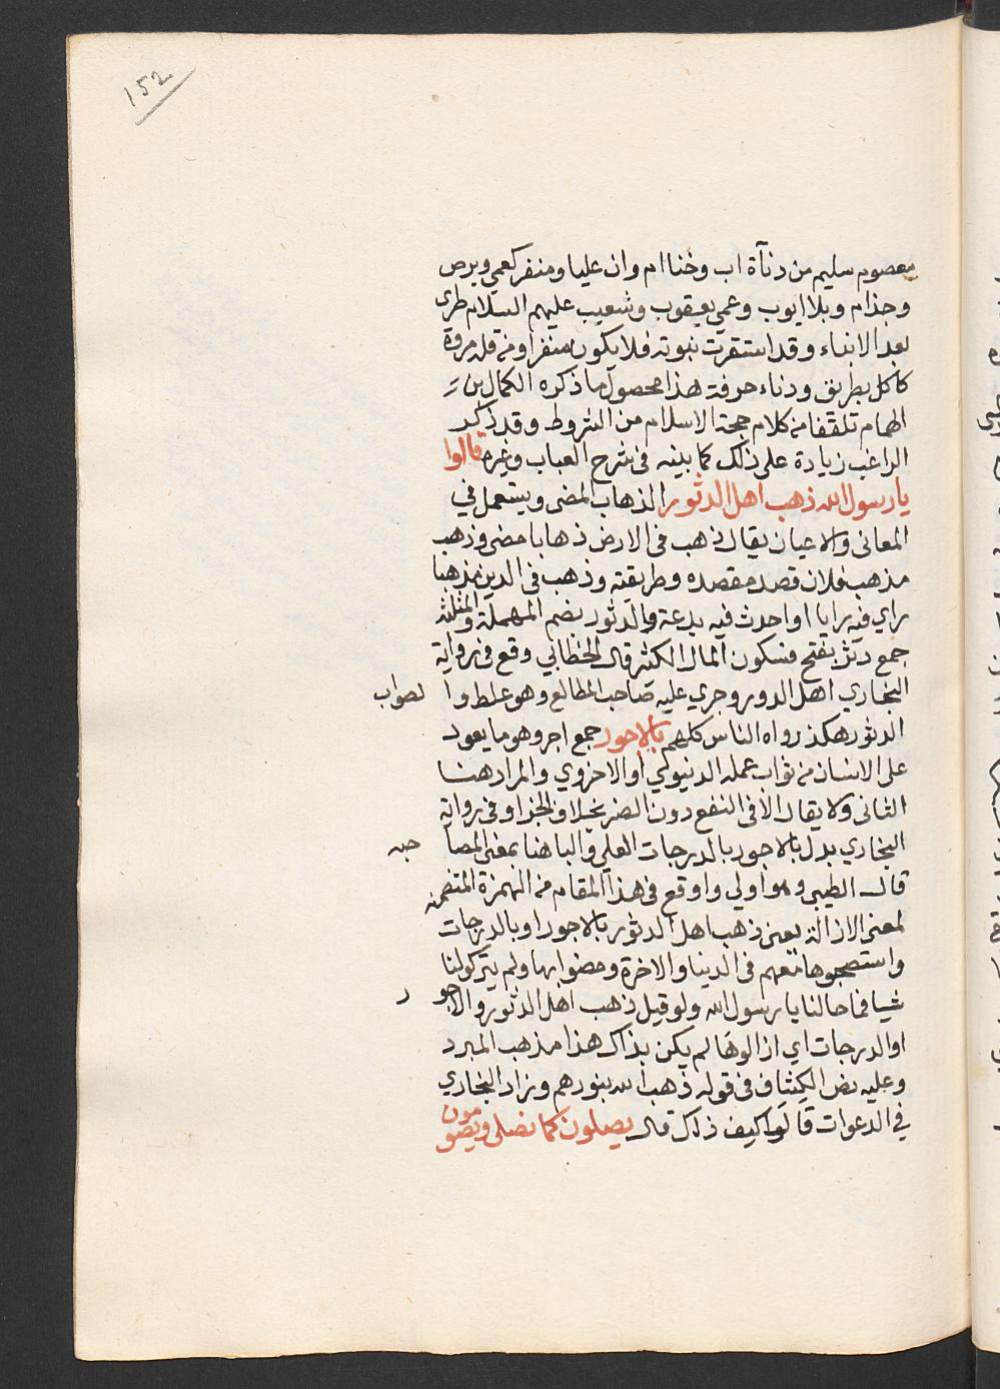 152
معصوم سليم من دنآة اب وخنا ام وان عليا ومنفر كعمي وبرص
وجذام وبلا ايوب وعمي يعقوب وشعيب عليهم السلام طرى
بعد الانباء وقد استقرت نبوته فلا يكون منفرا ومن قله مروة
كاكل بطريق ودناءة حرفة هذا محصول ما ذكره الكمال بن
الهمام تلقفا من كلام حجة الاسلام من الشروط وقد ذكر
الراغب زيادة على ذلك كما بينه فى شرح العباب وغيره قالوا
يا رسول الله ذهب اهل الدثور الذهاب المضى ويستعمل في
المعانى والاعيان يقال ذهب فى الارض ذهابا مضى وذهب
مذهب فلان قصد مقصده وطريقته وذهب فى الدين مذهبا
راي فيه رايا او احدث فيه بدعة والدثور بضم المهملة والمثلثة
جمع دثر بفتح فسكون المال الكثير قال الخطابي وقع فى رواية
البخاري اهل الدور وجري عليه صاحب المطالع وهو غلط والصواب
الدثور هكذ رواه الناس كلهم بالاجور جمع اجر وهو ما يعود
على الانسان من ثواب عمله الدنيوي او الاخروي والمراد هنا
الثانى ولا يقال الا فى النفع دون الضر بخلاف الجزا وفى رواية
البخاري بدل بالاجور بالدرجات العلي والبا هنا بمعنى المصاحبه
قال الطيبى وهو اولي واوقع فى هذا المقام من الهمزة المتضمنه
لمعنى الازالة يعنى ذهب اهل الدثور بالاجور او بالدرجات
واستصحبوها معهم فى الدنيا والاخرة ومضوا بها ولم يتركوا لنا
شيا فما حالنا يا رسول الله ولو قيل ذهب اهل الدثور والاجور
او الدرجات اي ازالوها لم يكن بذاك هذا مذهب المبرد
وعليه نص الكشاف فى قوله ذهب الله بنورهم وزاد البخاري
في الدعوات قالوا كيف ذلك قال يصلون كما نصلى ويصومون